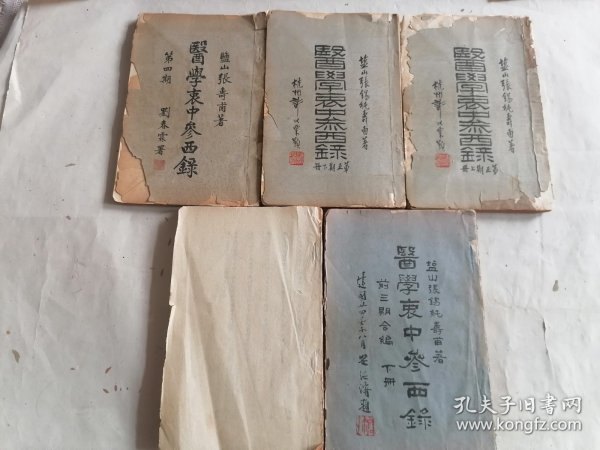 鹽山張壽甫著
醫學衷中參西錄
第四期
劉春霖署
鹽山張錫純壽甫著
醫學衷中參西錄
第五期下冊
杭州
鹽山張錫純壽甫著
醫學衷中參西錄
第五期上冊
杭州
鹽山張錫純壽甫著
醫學衷中參西錄
前三期合編 下冊
孔夫子旧书网
www.kongfz.com